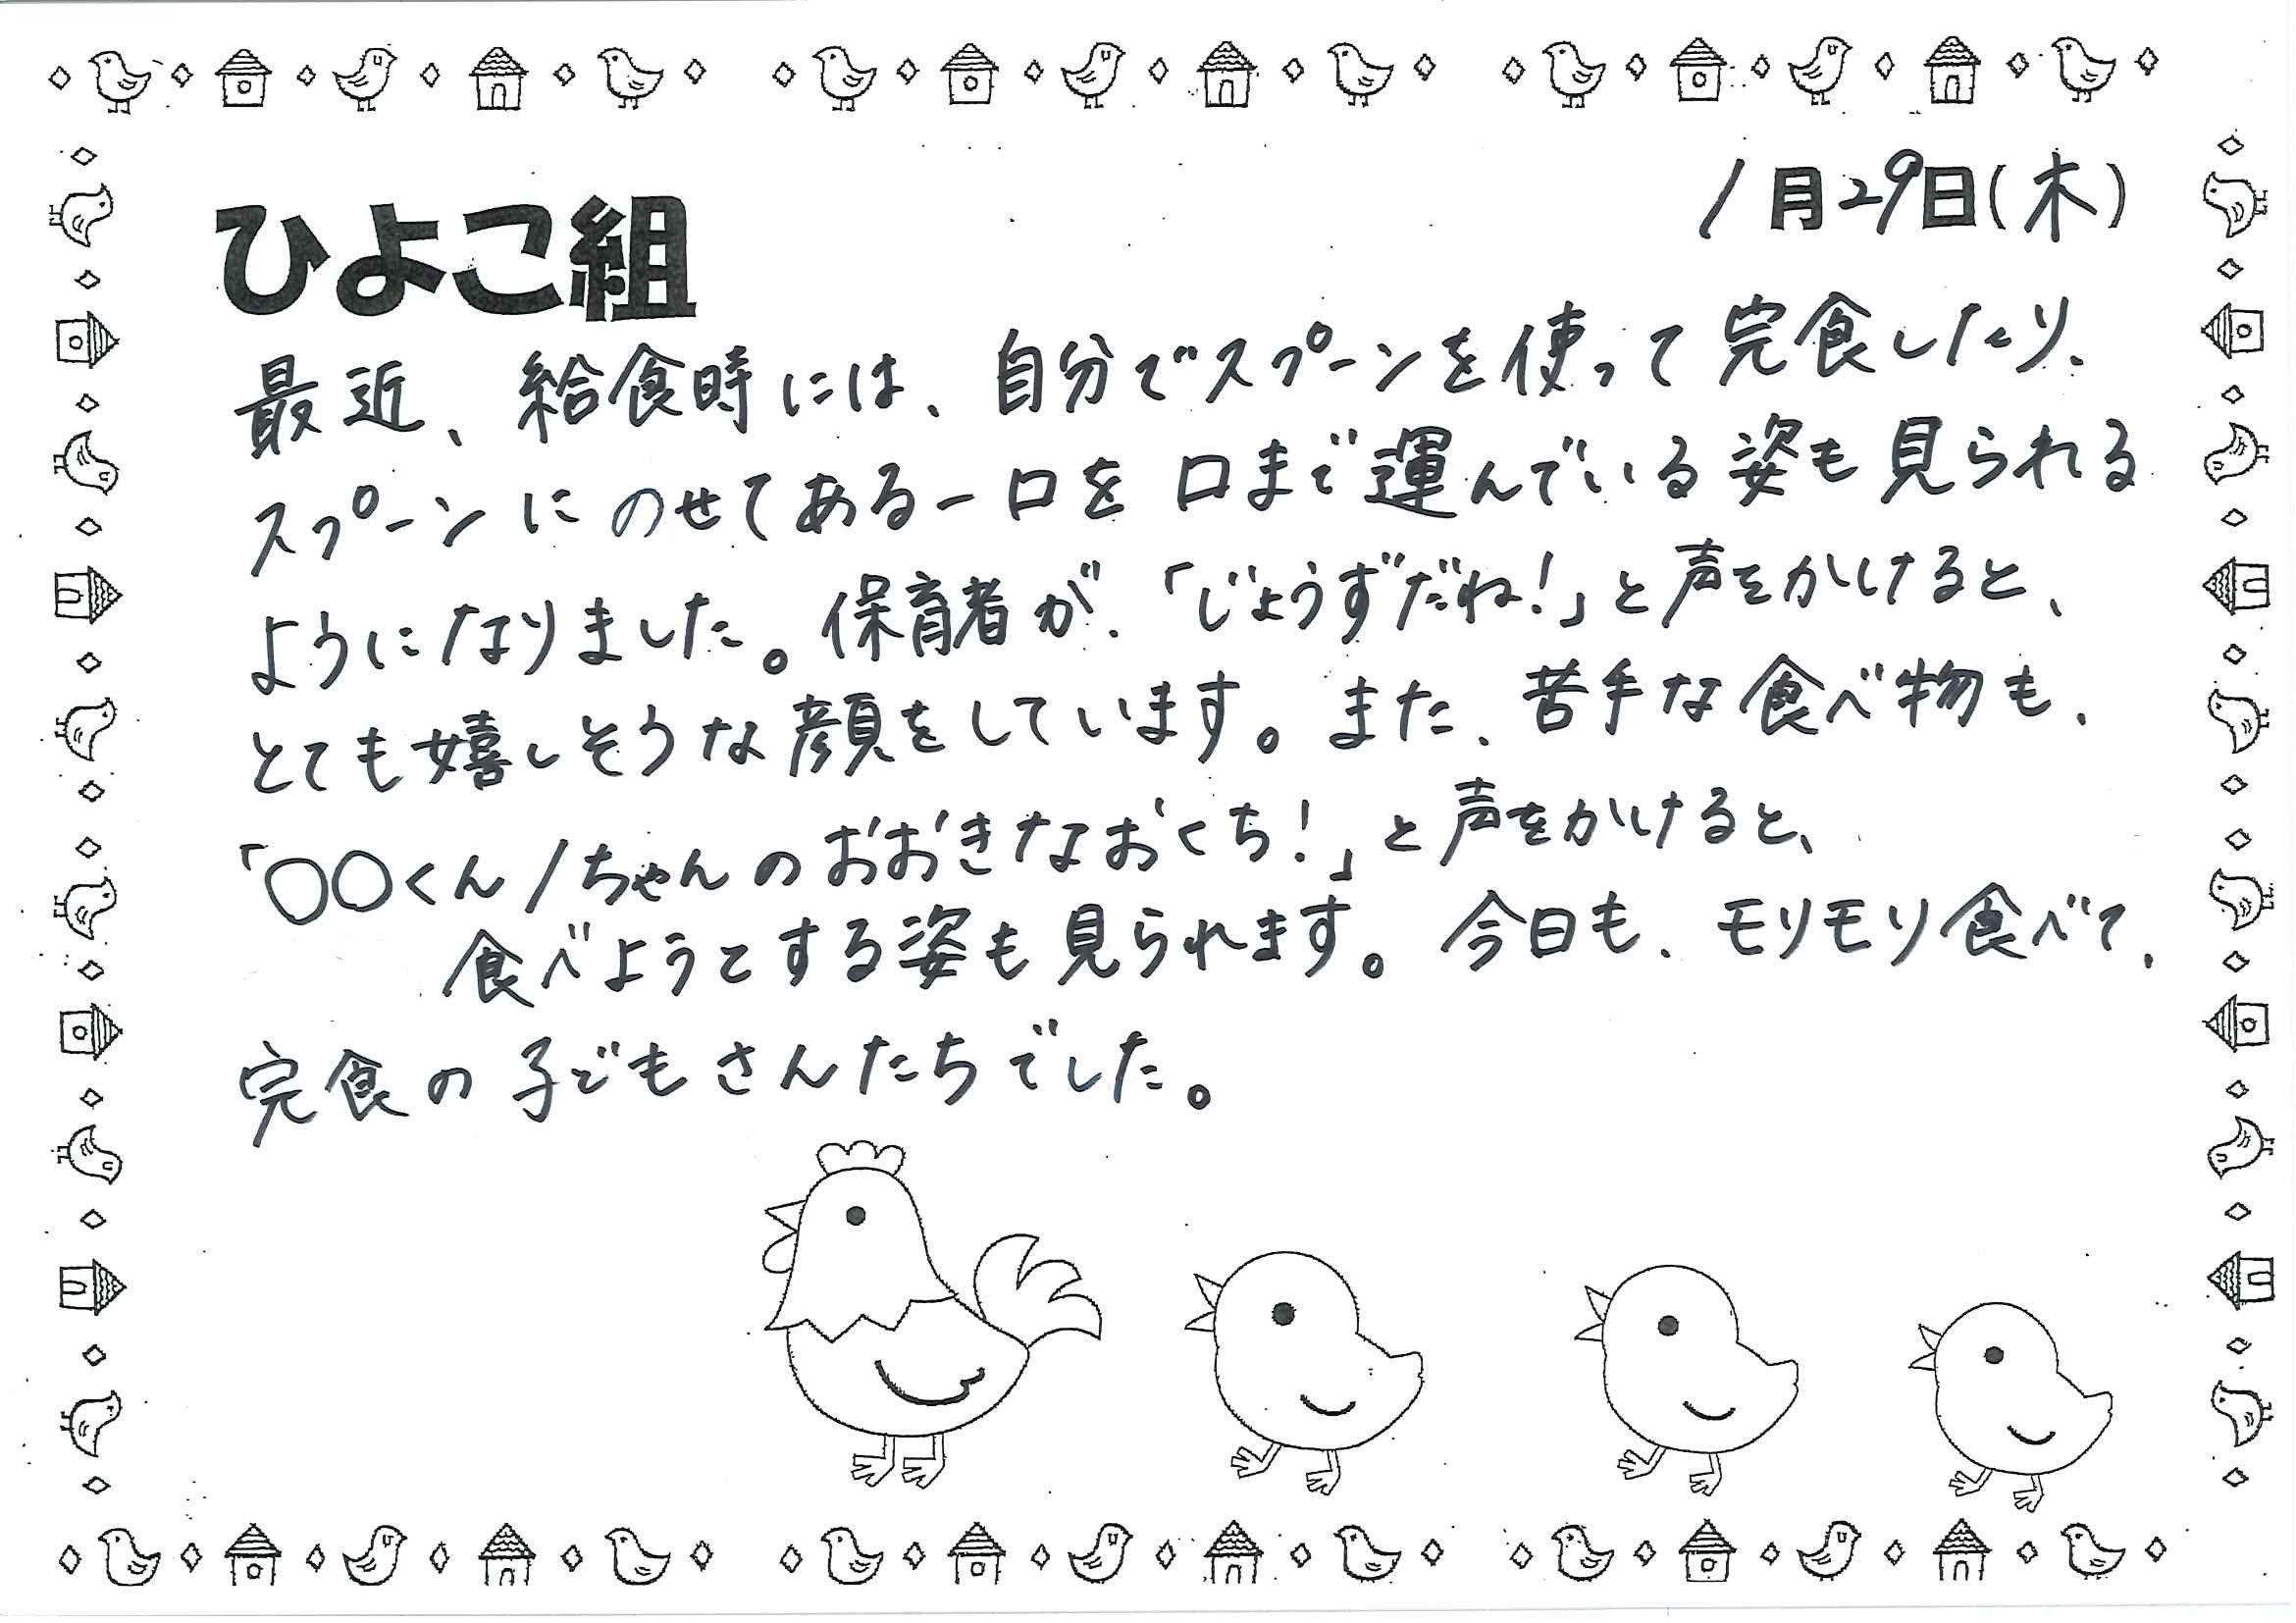 1月29日(木)
ひよこ組
最近、給食時には、自分でスプーンを使って完食したり、
スプーンにのせてある一口を口まで運んでいる姿も見られる
ようになりました。保育者が、「じょうずだね!」と声をかけると、
とても嬉しそうな顔をしています。また、苦手な食べ物も、
「〇〇くん/ちゃんのおおきなおくち!」と声をかけると、
食べようとする姿も見られます。今日も、モリモリ食べて、
完食の子どもさんたちでした。